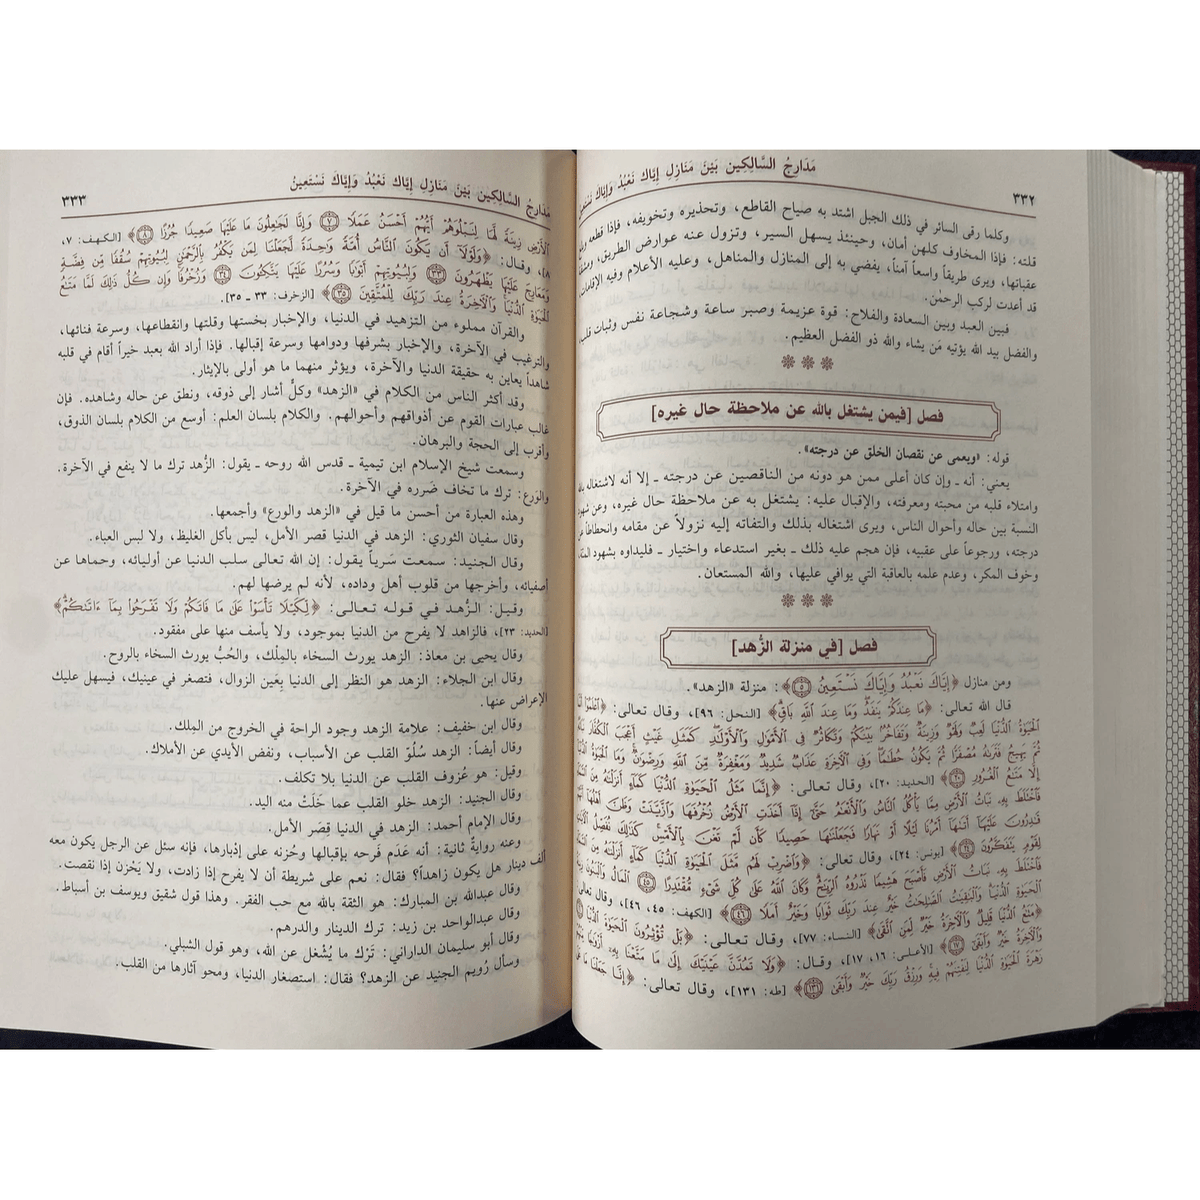 ٣٣٢
مَدَارِجُ السَّالِكِين بَيْنَ مَنَازِلِ إِيَّاكَ نَعْبُدُ وَإِيَّاكَ نَسْتَعِينُ
وكلما رقى السائر في ذلك الجبل اشتد به صياح القاطع، وتحذيره وتخويفه، فإذا قطعه وبلغ
قلته: فإذا المخاوف كلهن أمان، وحينئذ يسهل السير، وتزول عنه عوارض الطريق، ومشقة
عقباتها، ويرى طريقاً واسعاً آمناً، يفضي به إلى المنازل والمناهل، وعليه الأعلام وفيه الإقامات،
قد أعدت لركب الرحمن.
فبين العبد وبين السعادة والفلاح: قوة عزيمة وصبر ساعة وشجاعة نفس وثبات قلب،
والفضل بيد الله يؤتيه مَن يشاء والله ذو الفضل العظيم.
فصل [فيمن يشتغل بالله عن ملاحظة حال غيره]
قوله: «ويعمى عن نقصان الخلق عن درجته».
يعني: أنه ـ وإن كان أعلى ممن هو دونه من الناقصين عن درجته ـ إلا أنه لاشتغاله بالله
وامتلاء قلبه من محبته ومعرفته، والإقبال عليه: يشتغل به عن ملاحظة حال غيره، وعن شهود
النسبة بين حاله وأحوال الناس، ويرى اشتغاله بذلك والتفاته إليه نزولاً عن مقامه وانحطاطاً عن
درجته، ورجوعاً على عقبيه، فإن هجم عليه ذلك ـ بغير استدعاء واختيار ـ فليداوه بشهود المنة،
وخوف المكر، وعدم علمه بالعاقبة التي يوافي عليها، والله المستعان.
فصل [في منزلة الزُّهد]
ومن منازل ﴿إِيَّاكَ نَعْبُدُ وَإِيَّاكَ نَسْتَعِينُ ٥﴾: منزلة «الزهد».
قال الله تعالى: ﴿مَا عِندَكُمْ يَنفَدُ وَمَا عِندَ ٱللَّهِ بَاقٍ﴾ [النحل: ٩٦]، وقال تعالى: ﴿ٱعْلَمُوٓا۟ أَنَّمَا
ٱلْحَيَوٰةُ ٱلدُّنْيَا لَعِبٌ وَلَهْوٌ وَزِينَةٌ وَتَفَاخُرٌۢ بَيْنَكُمْ وَتَكَاثُرٌ فِى ٱلْأَمْوَٰلِ وَٱلْأَوْلَٰدِ كَمَثَلِ غَيْثٍ أَعْجَبَ ٱلْكُفَّارَ نَبَاتُهُۥ
ثُمَّ يَهِيجُ فَتَرَىٰهُ مُصْفَرًّا ثُمَّ يَكُونُ حُطَٰمًا وَفِى ٱلْءَاخِرَةِ عَذَابٌ شَدِيدٌ وَمَغْفِرَةٌ مِّنَ ٱللَّهِ وَرِضْوَٰنٌ وَمَا ٱلْحَيَوٰةُ ٱلدُّنْيَآ
إِلَّا مَتَٰعُ ٱلْغُرُورِ ٢٠﴾ [الحديد: ٢٠]، وقال تعالى: ﴿إِنَّمَا مَثَلُ ٱلْحَيَوٰةِ ٱلدُّنْيَا كَمَآءٍ أَنزَلْنَٰهُ مِنَ ٱلسَّمَآءِ
فَٱخْتَلَطَ بِهِۦ نَبَاتُ ٱلْأَرْضِ مِمَّا يَأْكُلُ ٱلنَّاسُ وَٱلْأَنْعَٰمُ حَتَّىٰٓ إِذَآ أَخَذَتِ ٱلْأَرْضُ زُخْرُفَهَا وَٱزَّيَّنَتْ وَظَنَّ أَهْلُهَآ أَنَّهُمْ
قَٰدِرُونَ عَلَيْهَآ أَتَىٰهَآ أَمْرُنَا لَيْلًا أَوْ نَهَارًا فَجَعَلْنَٰهَا حَصِيدًا كَأَن لَّمْ تَغْنَ بِٱلْأَمْسِ كَذَٰلِكَ نُفَصِّلُ ٱلْءَايَٰتِ
لِقَوْمٍ يَتَفَكَّرُونَ ٢٤﴾ [يونس: ٢٤]، وقال تعالى: ﴿وَٱضْرِبْ لَهُم مَّثَلَ ٱلْحَيَوٰةِ ٱلدُّنْيَا كَمَآءٍ أَنزَلْنَٰهُ مِنَ ٱلسَّمَآءِ
فَٱخْتَلَطَ بِهِۦ نَبَاتُ ٱلْأَرْضِ فَأَصْبَحَ هَشِيمًا تَذْرُوهُ ٱلرِّيَٰحُ وَكَانَ ٱللَّهُ عَلَىٰ كُلِّ شَىْءٍ مُّقْتَدِرًا ٤٥ ٱلْمَالُ وَٱلْبَنُونَ زِينَةُ
ٱلْحَيَوٰةِ ٱلدُّنْيَا وَٱلْبَٰقِيَٰتُ ٱلصَّٰلِحَٰتُ خَيْرٌ عِندَ رَبِّكَ ثَوَابًا وَخَيْرٌ أَمَلًا ٤٦﴾ [الكهف: ٤٥، ٤٦]، وقال تعالى:
﴿مَتَٰعُ ٱلدُّنْيَا قَلِيلٌ وَٱلْءَاخِرَةُ خَيْرٌ لِّمَنِ ٱتَّقَىٰ﴾ [النساء: ٧٧]، وقال تعالى: ﴿بَلْ تُؤْثِرُونَ ٱلْحَيَوٰةَ ٱلدُّنْيَا ١٦
وَٱلْءَاخِرَةُ خَيْرٌ وَأَبْقَىٰٓ ١٧﴾ [الأعلى: ١٦، ١٧]، وقال: ﴿وَلَا تَمُدَّنَّ عَيْنَيْكَ إِلَىٰ مَا مَتَّعْنَا بِهِۦٓ أَزْوَٰجًا مِّنْهُمْ
زَهْرَةَ ٱلْحَيَوٰةِ ٱلدُّنْيَا لِنَفْتِنَهُمْ فِيهِ وَرِزْقُ رَبِّكَ خَيْرٌ وَأَبْقَىٰ ١٣١﴾ [طه: ١٣١]، وقال تعالى: ﴿إِنَّا جَعَلْنَا مَا عَلَى
مَدَارِجُ السَّالِكِين بَيْنَ مَنَازِلِ إِيَّاكَ نَعْبُدُ وَإِيَّاكَ نَسْتَعِينُ
٣٣٣
ٱلْأَرْضِ زِينَةً لَّهَا لِنَبْلُوَهُمْ أَيُّهُمْ أَحْسَنُ عَمَلًا ٧ وَإِنَّا لَجَٰعِلُونَ مَا عَلَيْهَا صَعِيدًا جُرُزًا ٨﴾ [الكهف: ٧،
٨]، وقال: ﴿وَلَوْلَآ أَن يَكُونَ ٱلنَّاسُ أُمَّةً وَٰحِدَةً لَّجَعَلْنَا لِمَن يَكْفُرُ بِٱلرَّحْمَٰنِ لِبُيُوتِهِمْ سُقُفًا مِّن فِضَّةٍ
وَمَعَارِجَ عَلَيْهَا يَظْهَرُونَ ٣٣ وَلِبُيُوتِهِمْ أَبْوَٰبًا وَسُرُرًا عَلَيْهَا يَتَّكِـُٔونَ ٣٤ وَزُخْرُفًا وَإِن كُلُّ ذَٰلِكَ لَمَّا مَتَٰعُ
ٱلْحَيَوٰةِ ٱلدُّنْيَا وَٱلْءَاخِرَةُ عِندَ رَبِّكَ لِلْمُتَّقِينَ ٣٥﴾ [الزخرف: ٣٣ ـ ٣٥].
والقرآن مملوء من التزهيد في الدنيا، والإخبار بخستها وقلتها وانقطاعها، وسرعة فنائها،
والترغيب في الآخرة، والإخبار بشرفها ودوامها وسرعة إقبالها. فإذا أراد الله بعبد خيراً أقام في قلبه
شاهداً يعاين به حقيقة الدنيا والآخرة، ويؤثر منهما ما هو أولى بالإيثار.
وقد أكثر الناس من الكلام في «الزهد» وكلٌّ أشار إلى ذوقه، ونطق عن حاله وشاهده. فإن
غالب عبارات القوم عن أذواقهم وأحوالهم. والكلام بلسان العلم: أوسع من الكلام بلسان الذوق،
وأقرب إلى الحجة والبرهان.
وسمعت شيخ الإسلام ابن تيمية ـ قدس الله روحه ـ يقول: الزُّهد ترك ما لا ينفع في الآخرة.
والوَرع: ترك ما تخاف ضَرره في الآخرة.
وهذه العبارة من أحسن ما قيل في «الزهد والورع» وأجمعها.
وقال سفيان الثوري: الزهد في الدنيا قصر الأمل، ليس بأكل الغليظ، ولا لبس العباء.
وقال الجنيد: سمعت سَرياً يقول: إن الله تعالى سلب الدنيا عن أوليائه، وحماها عن
أصفيائه، وأخرجها من قلوب أهل وداده، لأنه لم يرضها لهم.
وقيل: الزُّهد في قوله تعالى: ﴿لِّكَيْلَا تَأْسَوْا۟ عَلَىٰ مَا فَاتَكُمْ وَلَا تَفْرَحُوا۟ بِمَآ ءَاتَىٰكُمْ﴾
[الحديد: ٢٣]، فالزاهد لا يفرح من الدنيا بموجود، ولا يأسف منها على مفقود.
وقال يحيى بن معاذ: الزهد يورث السخاء بالمِلْك، والحُبُّ يورث السخاء بالروح.
وقال ابن الجلاء: الزهد هو النظر إلى الدنيا بِعَين الزوال، فتصغر في عينيك، فيسهل عليك
الإعراض عنها.
وقال ابن خفيف: علامة الزهد وجود الراحة في الخروج من الملك.
وقال أيضاً: الزهد سُلُوّ القلب عن الأسباب، ونفض الأيدي عن الأملاك.
وقيل: هو عُزوف القلب عن الدنيا بلا تكلف.
وقال الجنيد: الزهد خلو القلب عما خَلَتْ منه اليد.
وقال الإمام أحمد: الزهد في الدنيا قِصَر الأمل.
وعنه روايةٌ ثانية: أنه عَدَم فَرحه بإقبالها وحُزنه على إدبارها، فإنه سئل عن الرجل يكون معه
ألف دينار هل يكون زاهداً؟ فقال: نعم على شريطة أن لا يفرح إذا زادت، ولا يَحْزن إذا نقصت.
وقال عبدالله بن المبارك: هو الثقة بالله مع حب الفقر. وهذا قول شقيق ويوسف بن أسباط.
وقال عبدالواحد بن زيد: ترك الدينار والدرهم.
وقال أبو سليمان الداراني: تَرْك ما يُشْغل عن الله، وهو قول الشبلي.
وسأل رُويم الجنيد عن الزهد؟ فقال: استصغار الدنيا، ومحو آثارها من القلب.